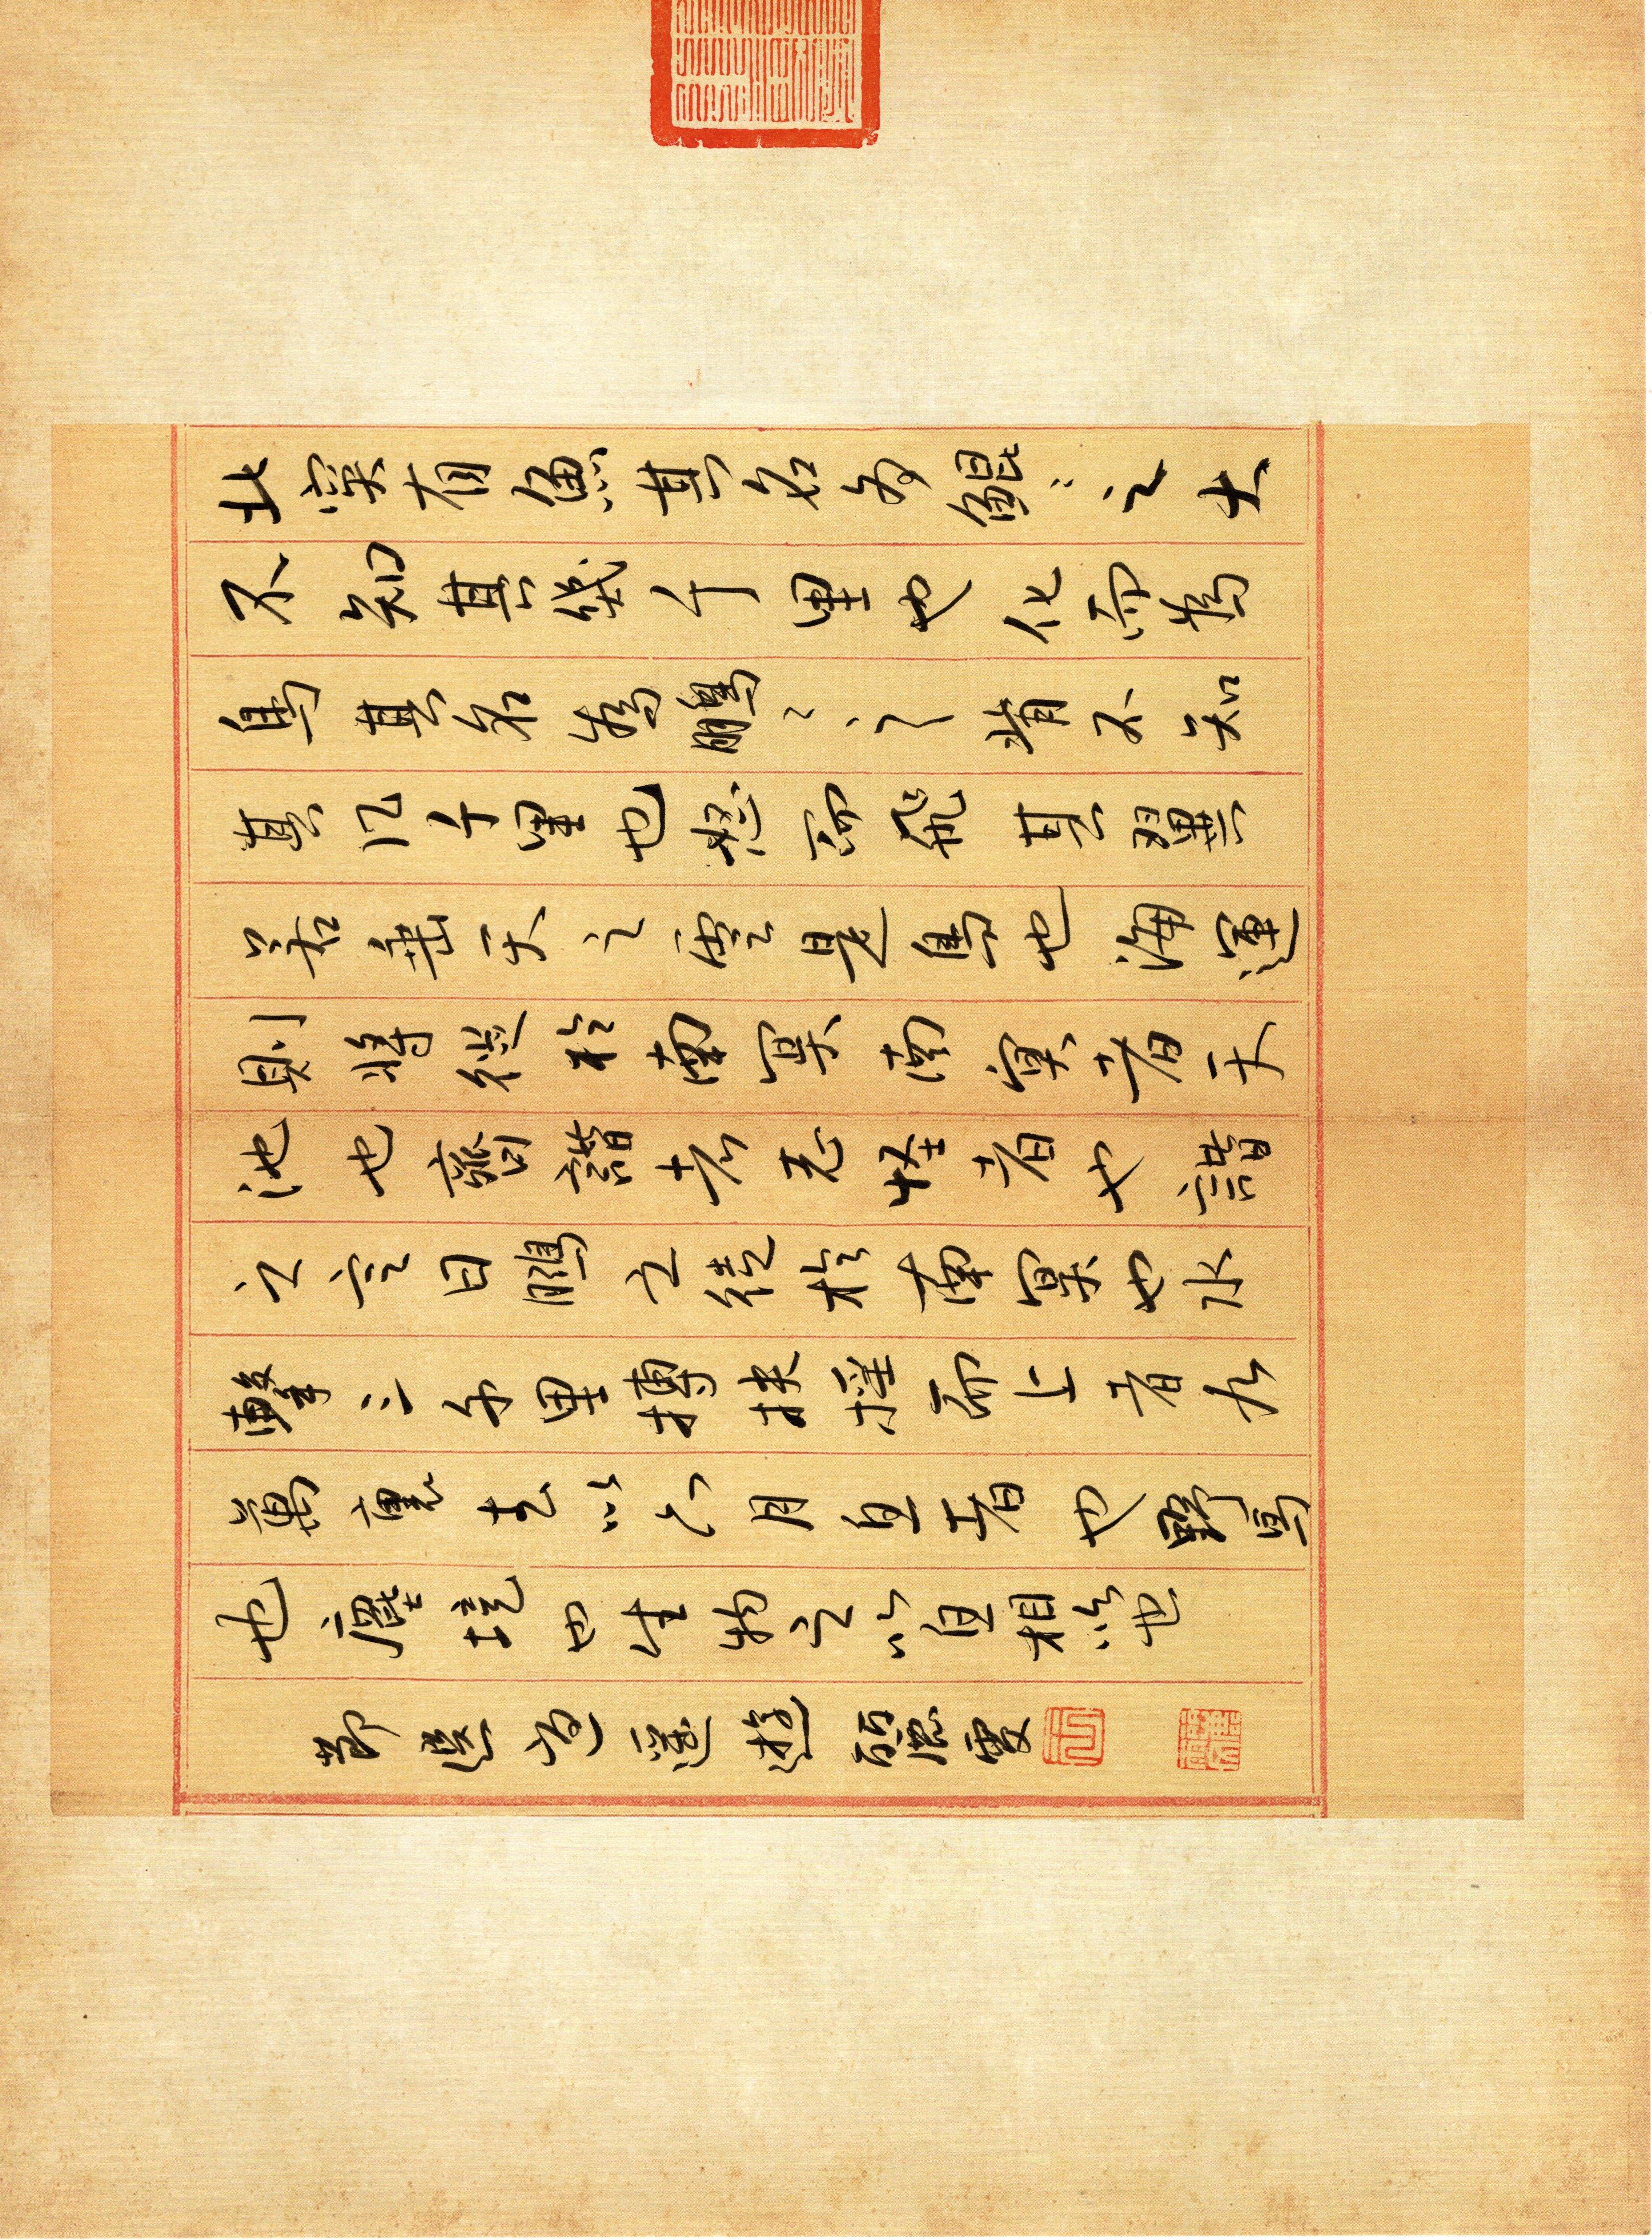 北溟有魚其名為鯤〻之大
不知其幾千里也化而為
鳥其名為鵬〻之背不知
其几千里也怒而飛其翼
若垂天之雲是鳥也海運
則將徙於南冥南冥者天
池也齊諧者志怪者也諧
之言曰鵬之徙於南冥也水
擊三千里摶扶搖而上者九
萬里去以六月息者也野馬
也塵埃也生物之以息相吹也
節選逍遙遊